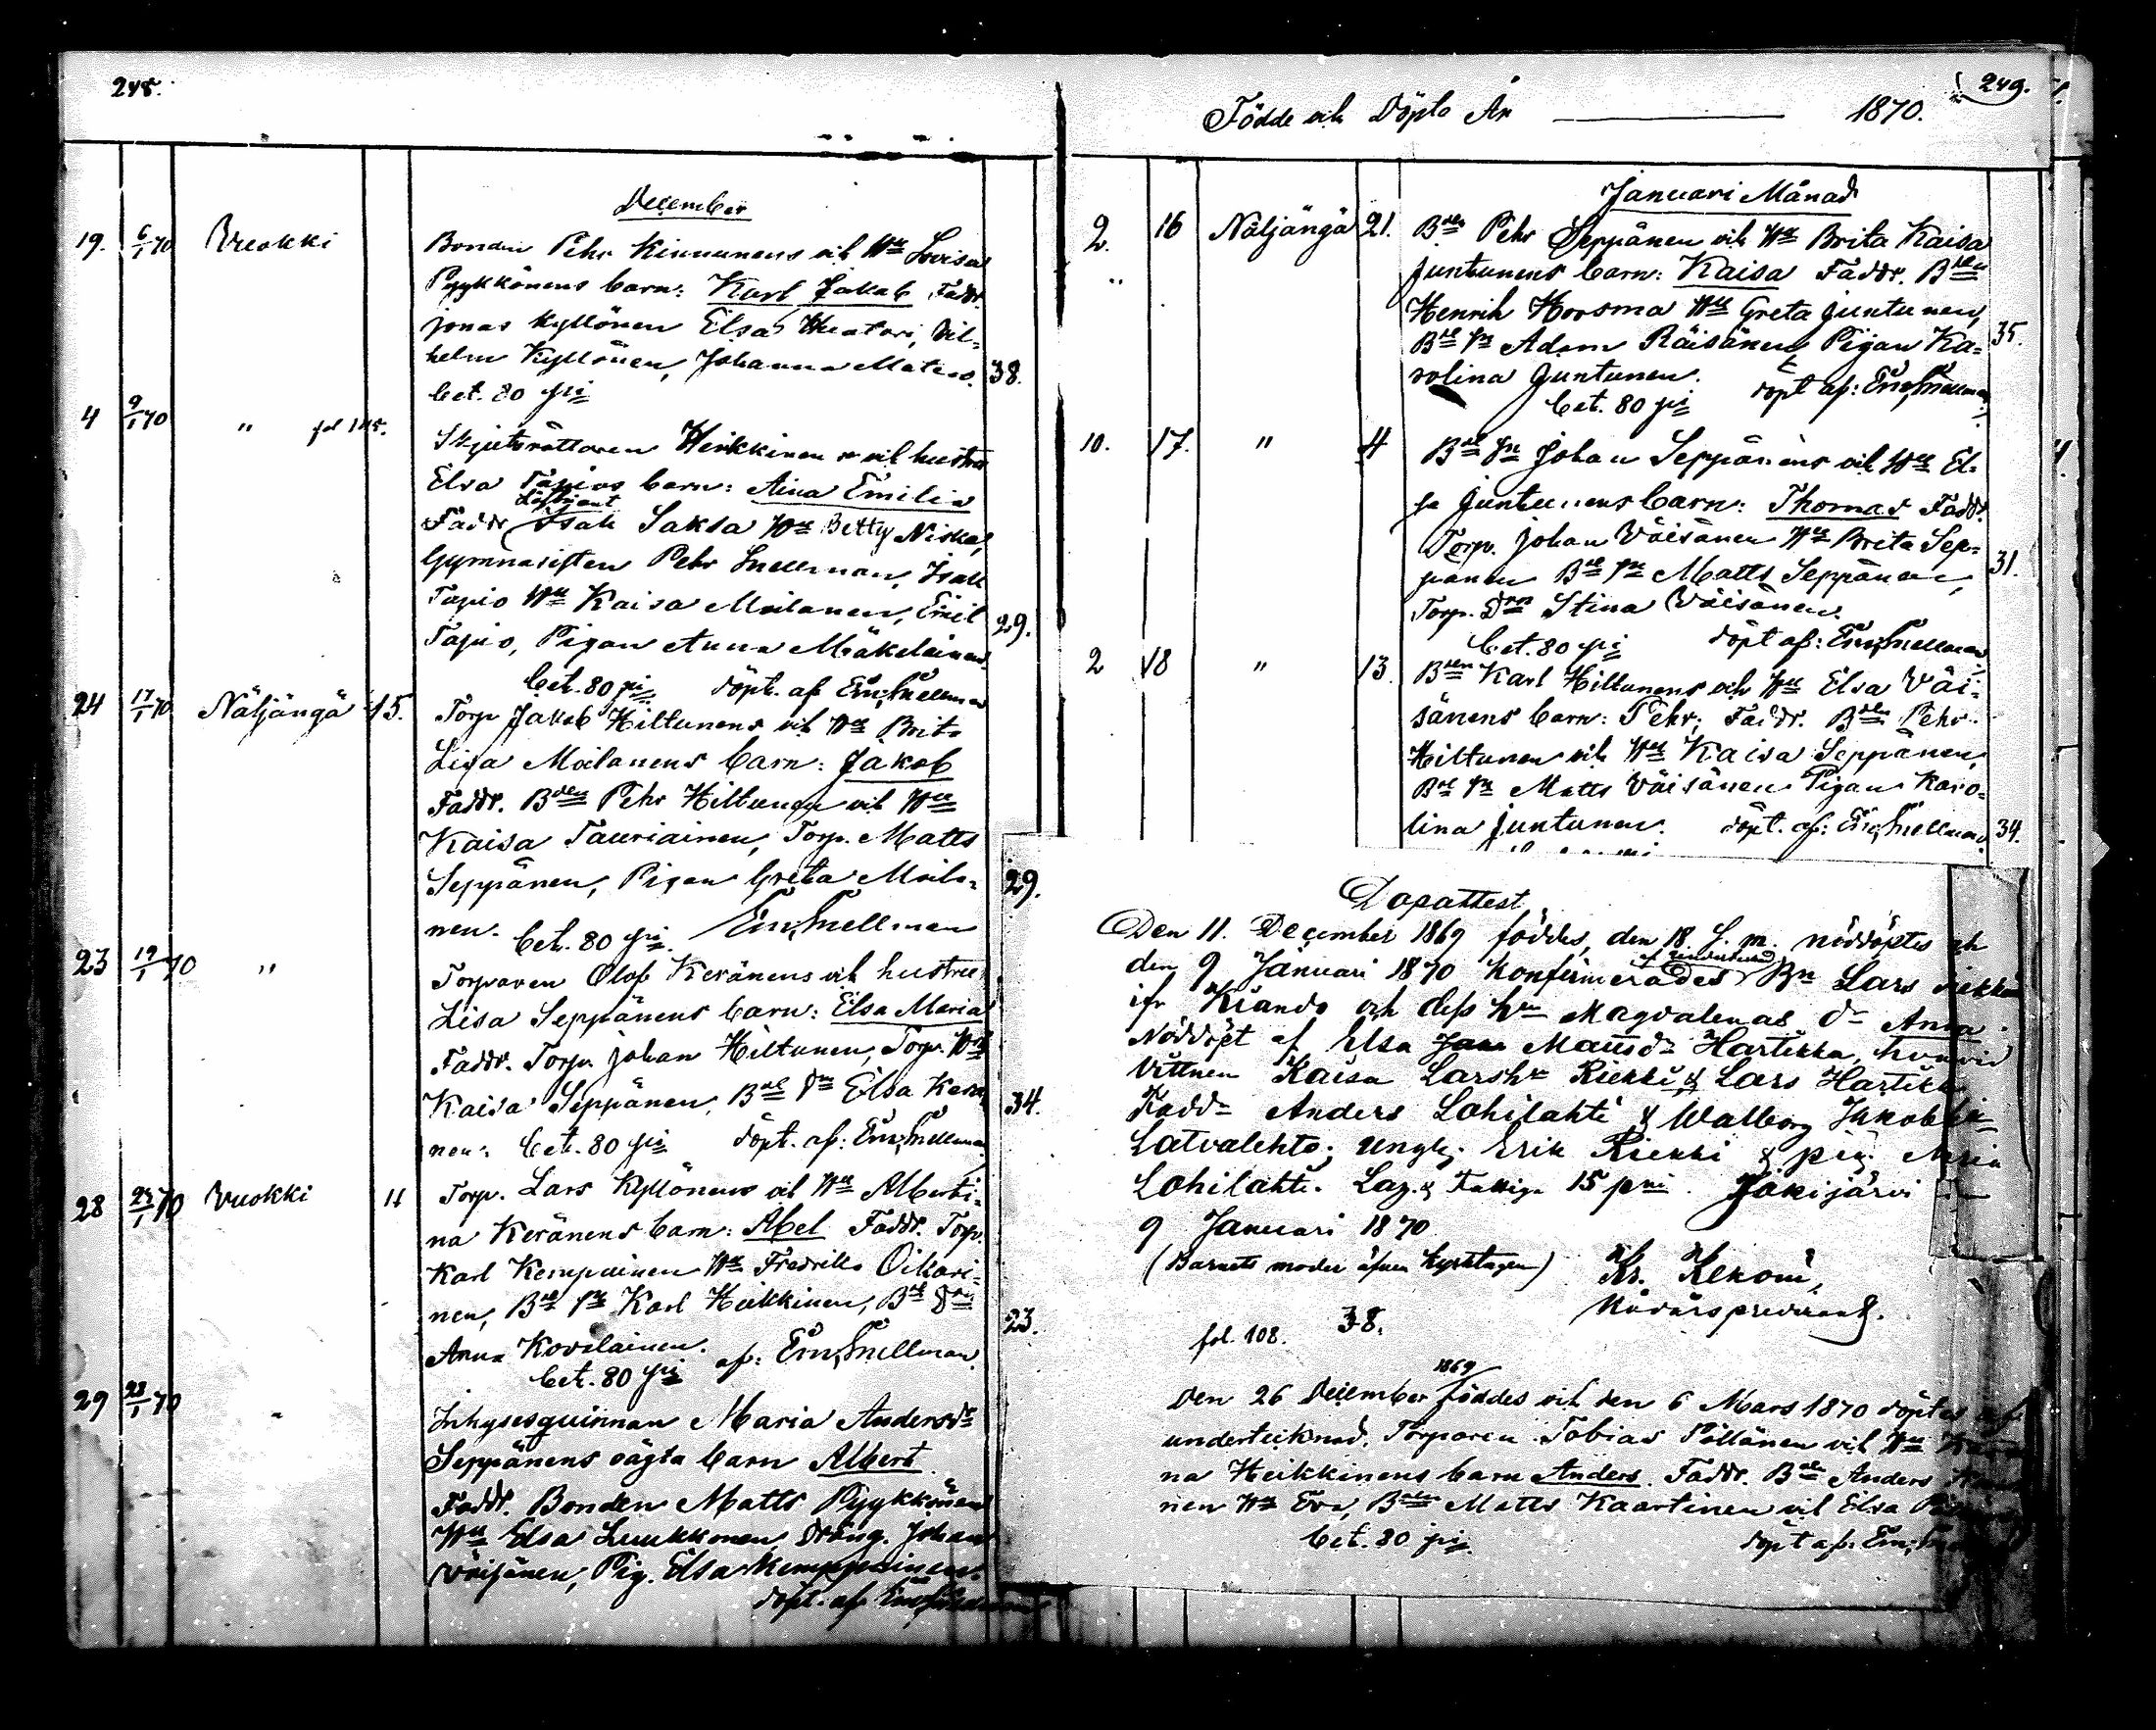 248.
December
19. 6/1 70 Vuokki
Bonden Pehr Kinnunens och Hu Lovisa
Pyykkönens barn: Karl Jakob Faddr.
Jonas Kyllönen Elsa Huotari, Vil-
helm Kyllönen, Johanna Matero. 38.
bet. 80 pi
4 9/1 70 " fol 145.
Skjutsrättaren Heikkinen och hustru
Elsa Tapios barn: Aina Emilia
Löjtnant
Faddr Isak Saksa Hu Betty Niska,
Gymnasisten Pehr Snellman, Isak
Tapio Hu Kaisa Moilanen, Emil 29.
Tapio, Pigan Anna Mäkeläinen
bet. 80 pi döpt. af Em. Snellman
24 17/1 70 Näljängä 15.
Torp Jakob Hiltunens och Hu Brita
Lisa Moilanens barn: Jakob
Faddr. Bden Pehr Hiltunen och Hu
Kaisa Tauriainen, Torp. Matts
Seppänen, Pigan Greta Moila- 29.
nen. bet. 80 pi. Em. Snellman
23 19/1 70 "
Torparen Olof Keränens och hustru
Lisa Seppänens barn: Elsa Maria
Faddr. Torp. Johan Hiltunen, Torp. Hu
Kaisa Seppänen, Bde Dr Elsa Kerä- 34.
nen. bet. 80 pi döpt. af: Em. Snellman
28 25/1 70 Vuokki 11
Torp. Lars Kyllönens och Hu Alberti-
na Keränens barn: Abel Faddr. Torp.
Karl Kemppainen Hu Fredrika Oikari-
nen, Bde Sn Karl Heikkinen, Bde Dr 23.
Anna Kovalainen.
bet. 80 pi af: Em. Snellman
29 28/1 70
Inhysesquinnan Maria Andersdr
Seppänens oägta barn Albert.
Faddr. Bonden Matts Pyykkönen
Hu Elsa Luukkonen, dräng. Johan
Väisänen, Pig. Elsa Kemppainen.
döpt. af Em. Snellman
249.
Födde och Döpte År 1870.
Januari Månad
2. 16 Näljängä 21. Bden Pehr Seppänen och Hu Brita Kaisa
" Juntunens barn: Kaisa Faddr. Bden
Henrik Moosma Hu Greta Juntunen,
Bde Sn Adam Räisänen Pigan Ka- 35.
rolina Juntunen. döpt af: Em. Snellman
bet. 80 pi
10. 17. " 4 Bde Sn Johan Seppänens och Hu El-
sa Juntunens barn: Thomas Faddr.
Torp. Johan Väisänen Hu Brita Sep-
pänen Bde Sn Matts Seppänen, 31.
Torp. Drn Stina Väisänen.
bet. 80 pi döpt af: Em. Snellman
2 18 " 13. Bden Karl Hiltunens och Hu Elsa Väi-
sänens barn: Pehr; Faddr. Bden Pehr
Hiltunen och Hu Kaisa Seppänen,
Bde Sn Matts Väisänen Pigan Karo-
lina Juntunen. döpt. af: Em. Snellman 34.
Dopattest
Den 11. December 1869 föddes, den 18. s. m. nöddöptes och
af undertecknad
den 9 Januari 1870 konfirmerades Bn Lars
ifr Kiando och dess hu Magdalenas dr Anna.
Nöddöpt af Elsa Mattsdr Hartikka, hvarvid
Vittnen Kaisa Larshu Riekki & Lars Hartikka
Faddr Anders Lohilahti & Walborg
Latvalehto; Ungk. Erik Riekki & pig.
Lohilahti. 15 pni. Jokijärvi
9 Januari 1870
(Barnets moder äfven kyrktagen) Kr. Rekoni,
Nödårspredikant.
fol. 108. 38.
1869
Den 26 December föddes och den 6 Mars 1870 döptes af
undertecknad. Torparen Tobias Pöllänen och Hu
na Heikkinens barn Anders. Faddr. Bde Anders
nen Hu Eva, Bden Matts Kaartinen och Elsa
bet. 80 pi. döpt af: Em.